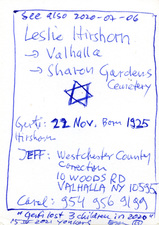 See also 2020-02-06
Leslie Hirshorn
→ Valhalla
→ Sharon Gardens
Cemetery
Gerti: 22 Nov. Born 1925
Hirshorn
JEFF: Westchester County
Correction
10 WOODS RD
VALHALLA NY 10595
Carol: 954 956 9199
"Gerti lost 3 children in 2020"
Yonkers